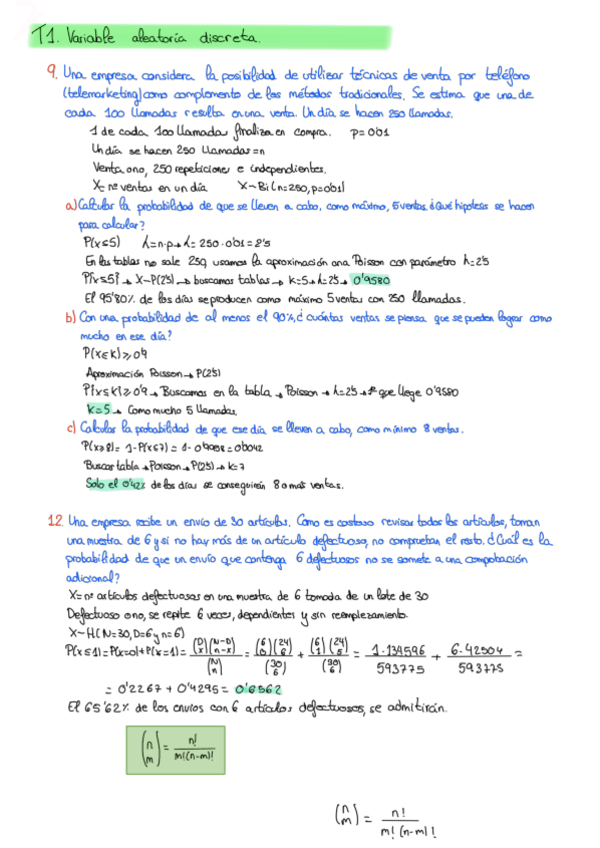 T1. Variable aleatoria discreta.
9. Una empresa considera la posibilidad de utilizar técnicas de venta por teléfono
(telemarketing) como complemento de los métodos tradicionales. Se estima que una de
cada 100 llamadas resulta en una venta. Un día se hacen 250 llamadas.
1 de cada 100 llamadas finaliza en compra. p=0'01
Un día se hacen 250 llamadas=n
Venta o no, 250 repeticiones e independientes.
X=nº ventas en un día X~Bi(n=250,p=0'01)
a) Calcular la probabilidad de que se lleven a cabo, como máximo, 5 ventas. ¿Qué hipótesis se hacen
para calcular?
P(x≤5) λ=n·p→λ=250·0'01=2'5
En las tablas no sale 250, usamos la aproximación a una Poisson con parámetro λ=2'5
P(x≤5)→ X~P(2'5)→ buscamos tablas→ k=5→λ=2'5→ 0'9580
El 95'80% de los días se producen como máximo 5 ventas con 250 llamadas.
b) Con una probabilidad de al menos el 90%,¿ cuántas ventas se piensa que se pueden lograr como
mucho en ese día?
P(x≤k)≥0'9
Aproximación Poisson→P(2'5)
P(x≤k)≥0'9→Buscamos en la tabla→Poisson→λ=2'5→1º que llege 0'9580
k=5→ Como mucho 5 llamadas.
c) Calcular la probabilidad de que ese día se lleven a cabo, como mínimo 8 ventas.
P(x≥8)= 1-P(x≤7)= 1-0'9958=0'0042
Buscar tabla→Poisson→P(2'5)→k=7
Solo el 0'42% de los días se conseguirán 8 o más ventas.
12. Una empresa recibe un envío de 30 artículos. Como es costoso revisar todos los artículos, toman
una muestra de 6 y si no hay más de un artículo defectuoso, no comprueban el resto. ¿Cuál es la
probabilidad de que un envío que contenga 6 defectuosos no se somete a una comprobación
adicional?
X=nº artículos defectuosos en una muestra de 6 tomada de un lote de 30
Defectuoso o no, se repite 6 veces, dependientes y sin reemplazamiento.
X~H(N=30,D=6 y n=6)
P(x≤1)=P(x=0)+P(x=1)= (D x)(N-D n-x)/(N n) = (6 0)(24 6)/(30 6) + (6 1)(24 5)/(30 6) = 1·134596/593775 + 6·42504/593775 =
= 0'2267 + 0'4295= 0'6562
El 65'62% de los envíos con 6 artículos defectuosos, se admitirán.
(n m) = n!/m!(n-m)!
(n m) = n!/m!(n-m)!